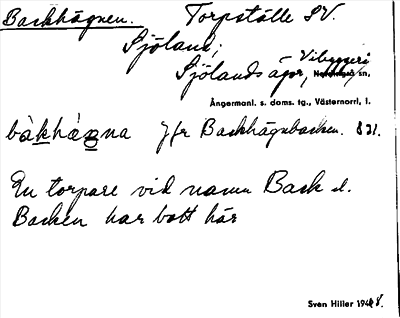 Backhägnen. Torpställe SV.
Sjöland,
Sjölands ägor, Vibyggerå sn,
Ångermanl. s. doms. tg., Västernorrl. l.
bàkhágna Jfr Backhägnbacken. 821.
En torpare vid namn Back el.
Backen har bott här
Sven Hiller 1948.